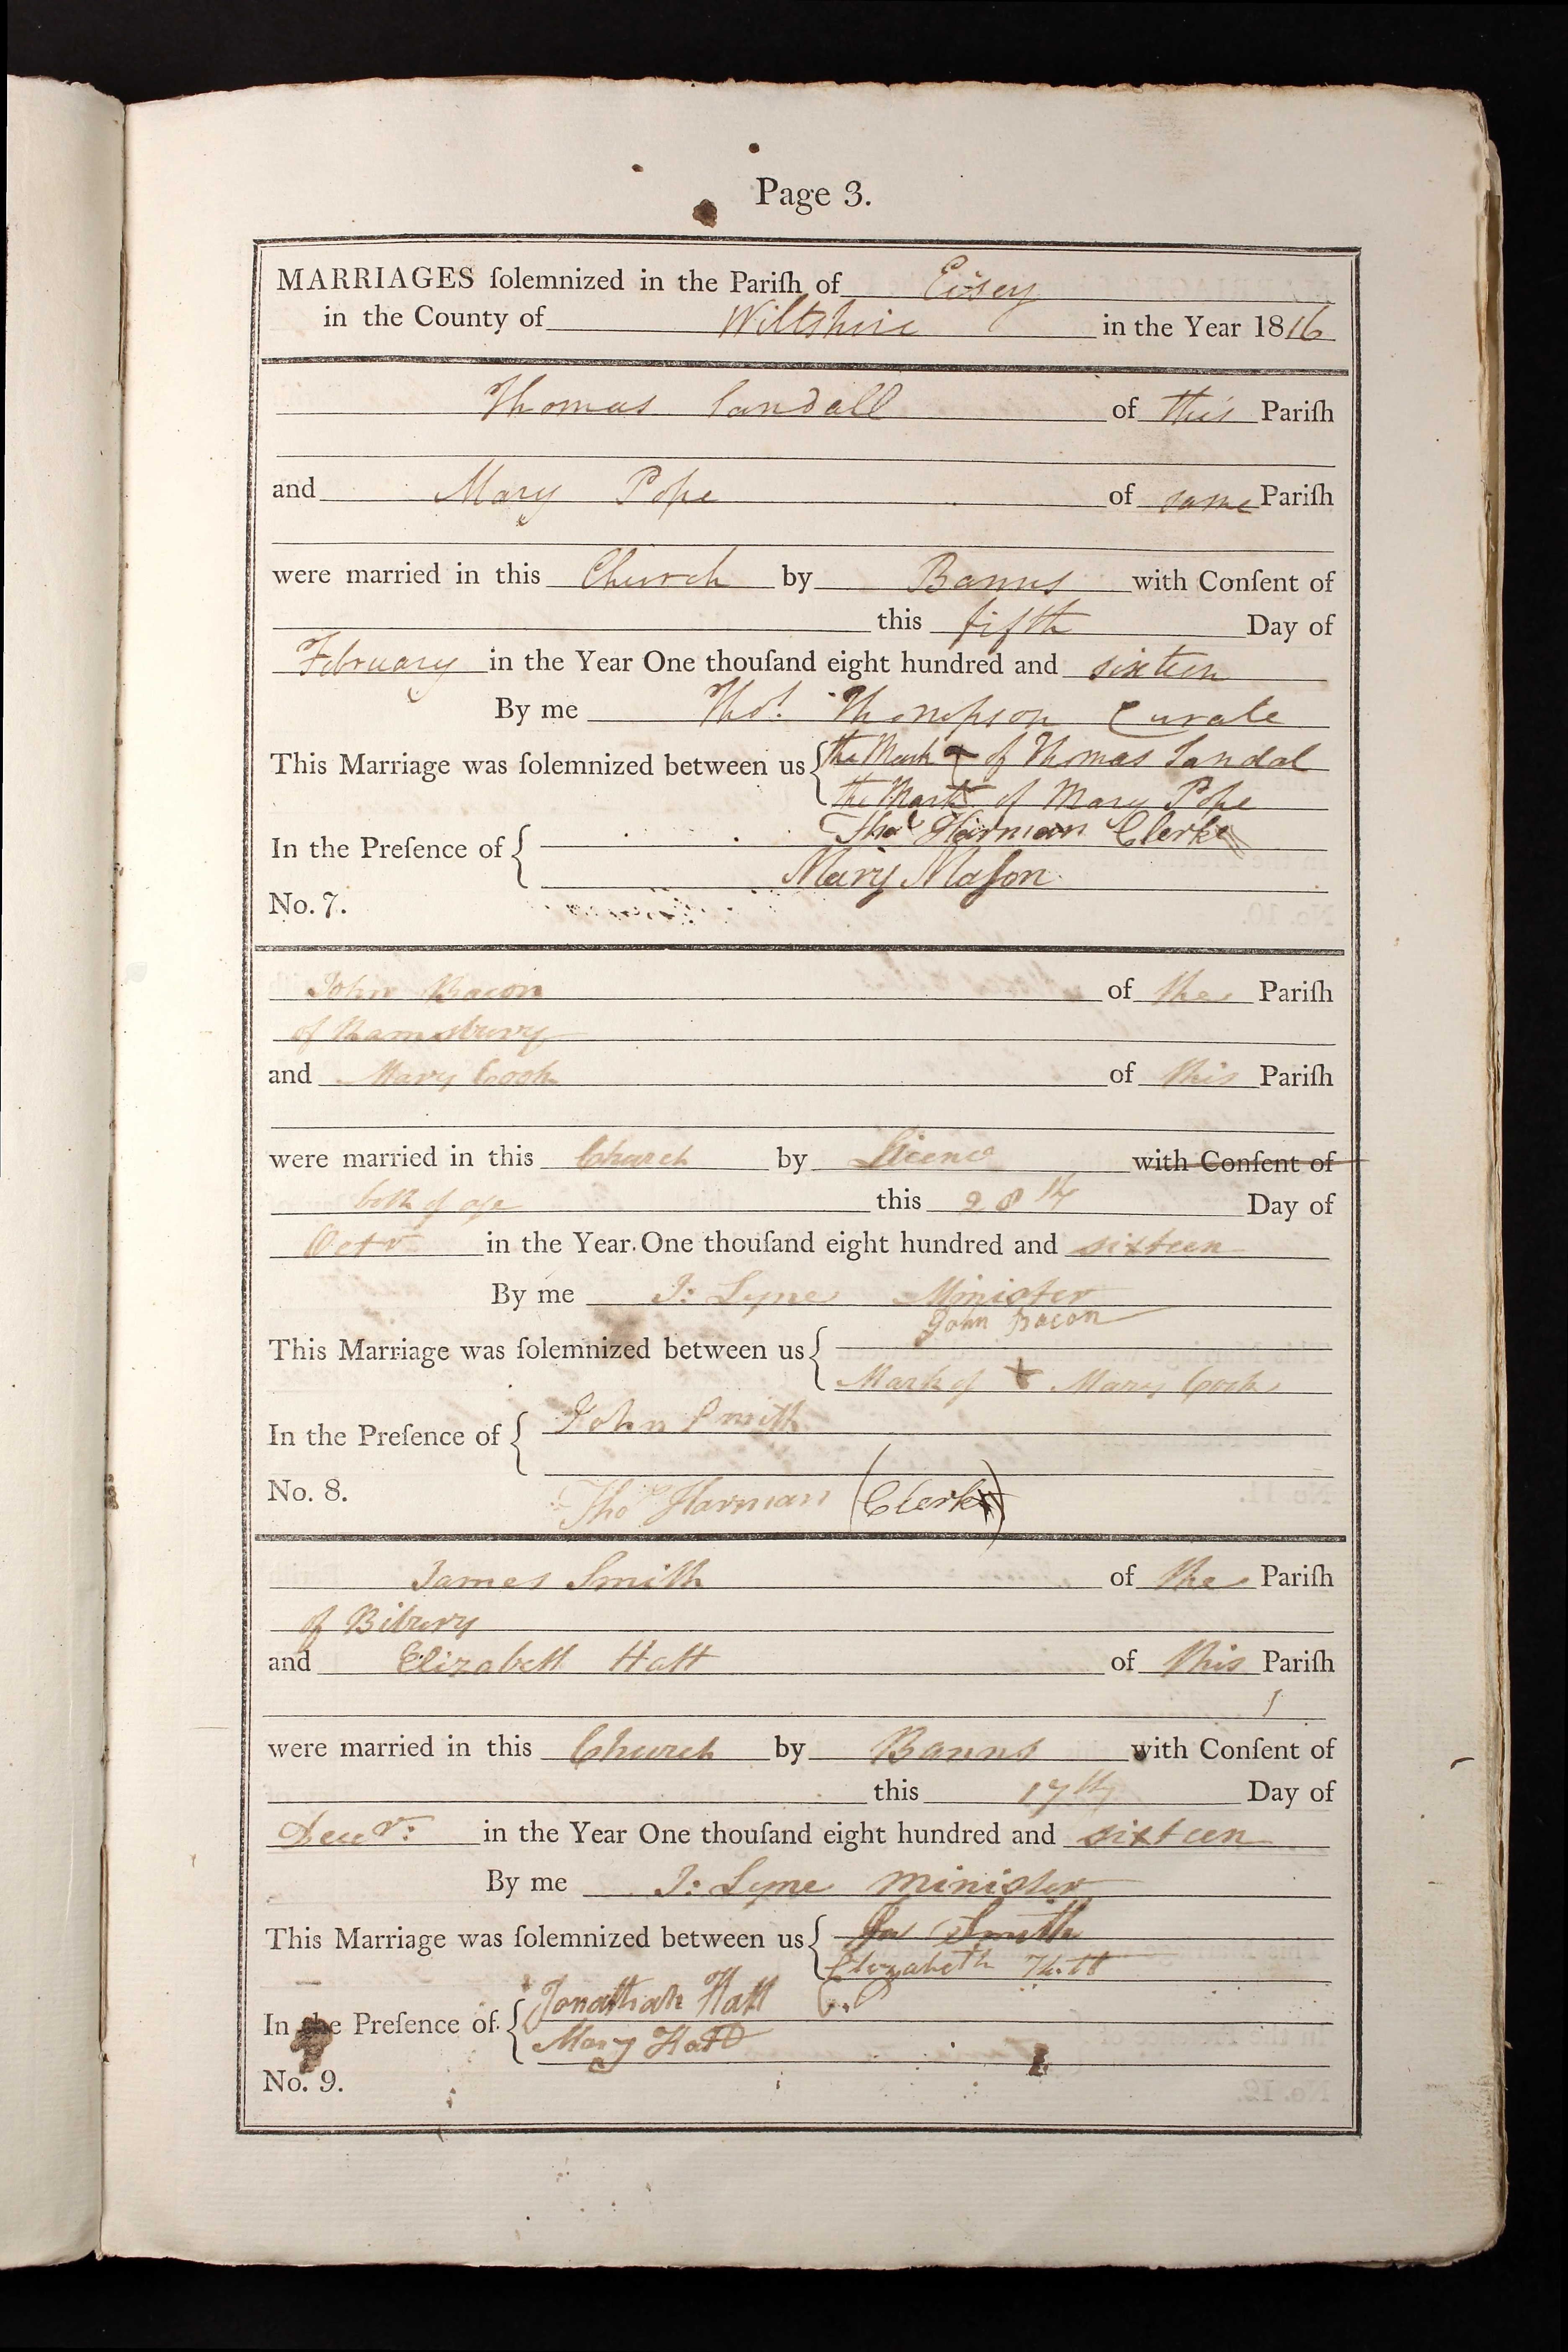 Page 3.
MARRIAGES ſolemnized in the Pariſh of Eisey
in the County of Wiltshire in the Year 1816
Thomas Sandall of this Pariſh
and Mary Pope of same Pariſh
were married in this Church by Banns with Conſent of
this fifth Day of
February in the Year One thouſand eight hundred and sixteen
By me Thos. Thompson Curate
This Marriage was ſolemnized between us { the Mark + of Thomas Sandal
the Mark + of Mary Pope
In the Preſence of { Thos Harman Clerk
Mary Maſon
No. 7.
John Bacon of the Pariſh
of Ramsbury
and Mary Cook of this Pariſh
were married in this Church by Licence with Conſent of
both of age this 28th Day of
Octr in the Year One thouſand eight hundred and sixteen
By me J: Lyne Minister
John Bacon
This Marriage was ſolemnized between us {
Mark of + Mary Cook
In the Preſence of { John Smith
No. 8. Thos Harman (Clerk)
James Smith of the Pariſh
of Bibury
and Elizabeth Hatt of this Pariſh
were married in this Church by Banns with Conſent of
this 17th Day of
Decr: in the Year One thouſand eight hundred and sixteen
By me J: Lyne Minister
This Marriage was ſolemnized between us { Jas Smith
Elizabeth Hatt
In the Preſence of { Jonathan Hatt
Mary Hatt
No. 9.
No. 10.
No. 11.
No. 12.